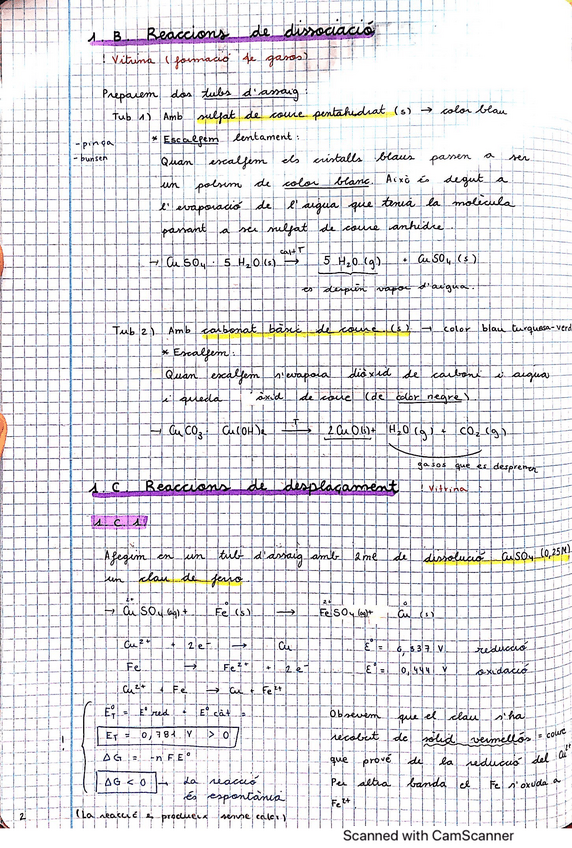 1. B. Reaccions de dissociació
! Vitrina (formació de gasos)
Preparem dos tubs d'assaig:
Tub 1) Amb sulfat de coure pentahidrat (s) → color blau
- pinça
- bunsen
* Escalfem lentament:
Quan escalfem els cristalls blaus passen a ser
un polsim de color blanc. Això és degut a
l'evaporació de l'aigua que tenia la molècula
passant a ser sulfat de coure anhidre.
→ CuSO₄ · 5 H₂O (s) cal+T → 5 H₂O (g) + CuSO₄ (s)
es desprèn vapor d'aigua.
Tub 2) Amb carbonat bàsic de coure (s) → color blau turquesa-verd
* Escalfem:
Quan escalfem s'evapora diòxid de carboni i aigua
i queda òxid de coure (de color negre)
→ CuCO₃ · Cu(OH)₂ T → 2 CuO (s) + H₂O (g) + CO₂ (g)
gasos que es desprenen
1. C. Reaccions de desplaçament ! Vitrina
1. C. 1)
Afegim en un tub d'assaig amb 2 ml de dissolució CuSO₄ (0,25M)
un clau de ferro
2+ 0 2+ 0
→ CuSO₄ (aq) + Fe (s) → FeSO₄ (aq) + Cu (s)
Cu²⁺ + 2e⁻ → Cu E° = 0,337 V reducció
Fe → Fe²⁺ + 2e⁻ E° = 0,444 V oxidació
Cu²⁺ + Fe → Cu + Fe²⁺
E°T = E°red + E°cat =
ET = 0,781 V > 0
ΔG = -nFE°
ΔG < 0 → La reacció
és espontània
(La reacció es produeix sense calor)
!
Observem que el clau s'ha
recobert de sòlid vermellós = coure
que prové de la reducció del Cu²⁺
Per altra banda el Fe s'oxida a
Fe²⁺.
2
Scanned with CamScanner